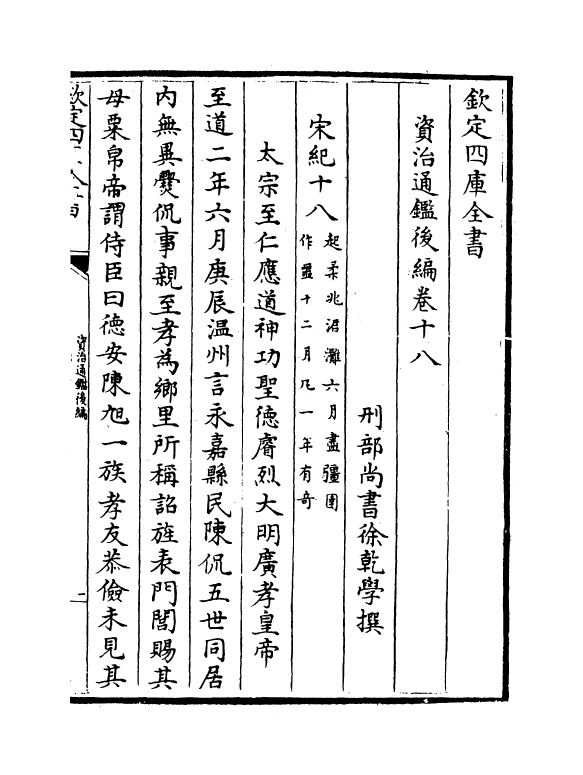 欽定四庫全書
資治通鑑後編卷十八
刑部尚書徐乾學撰
宋紀十八
起柔兆涒灘六月盡彊圉
作噩十二月凡一年有奇
太宗至仁應道神功聖德睿烈大明廣孝皇帝
至道二年六月庚辰温州言永嘉縣民陳侃五世同居
内無異爨侃事親至孝為鄉里所稱詔旌表門閭賜其
母粟帛帝謂侍臣曰徳安陳旭一族孝友恭儉未見其
資治通鑑後編